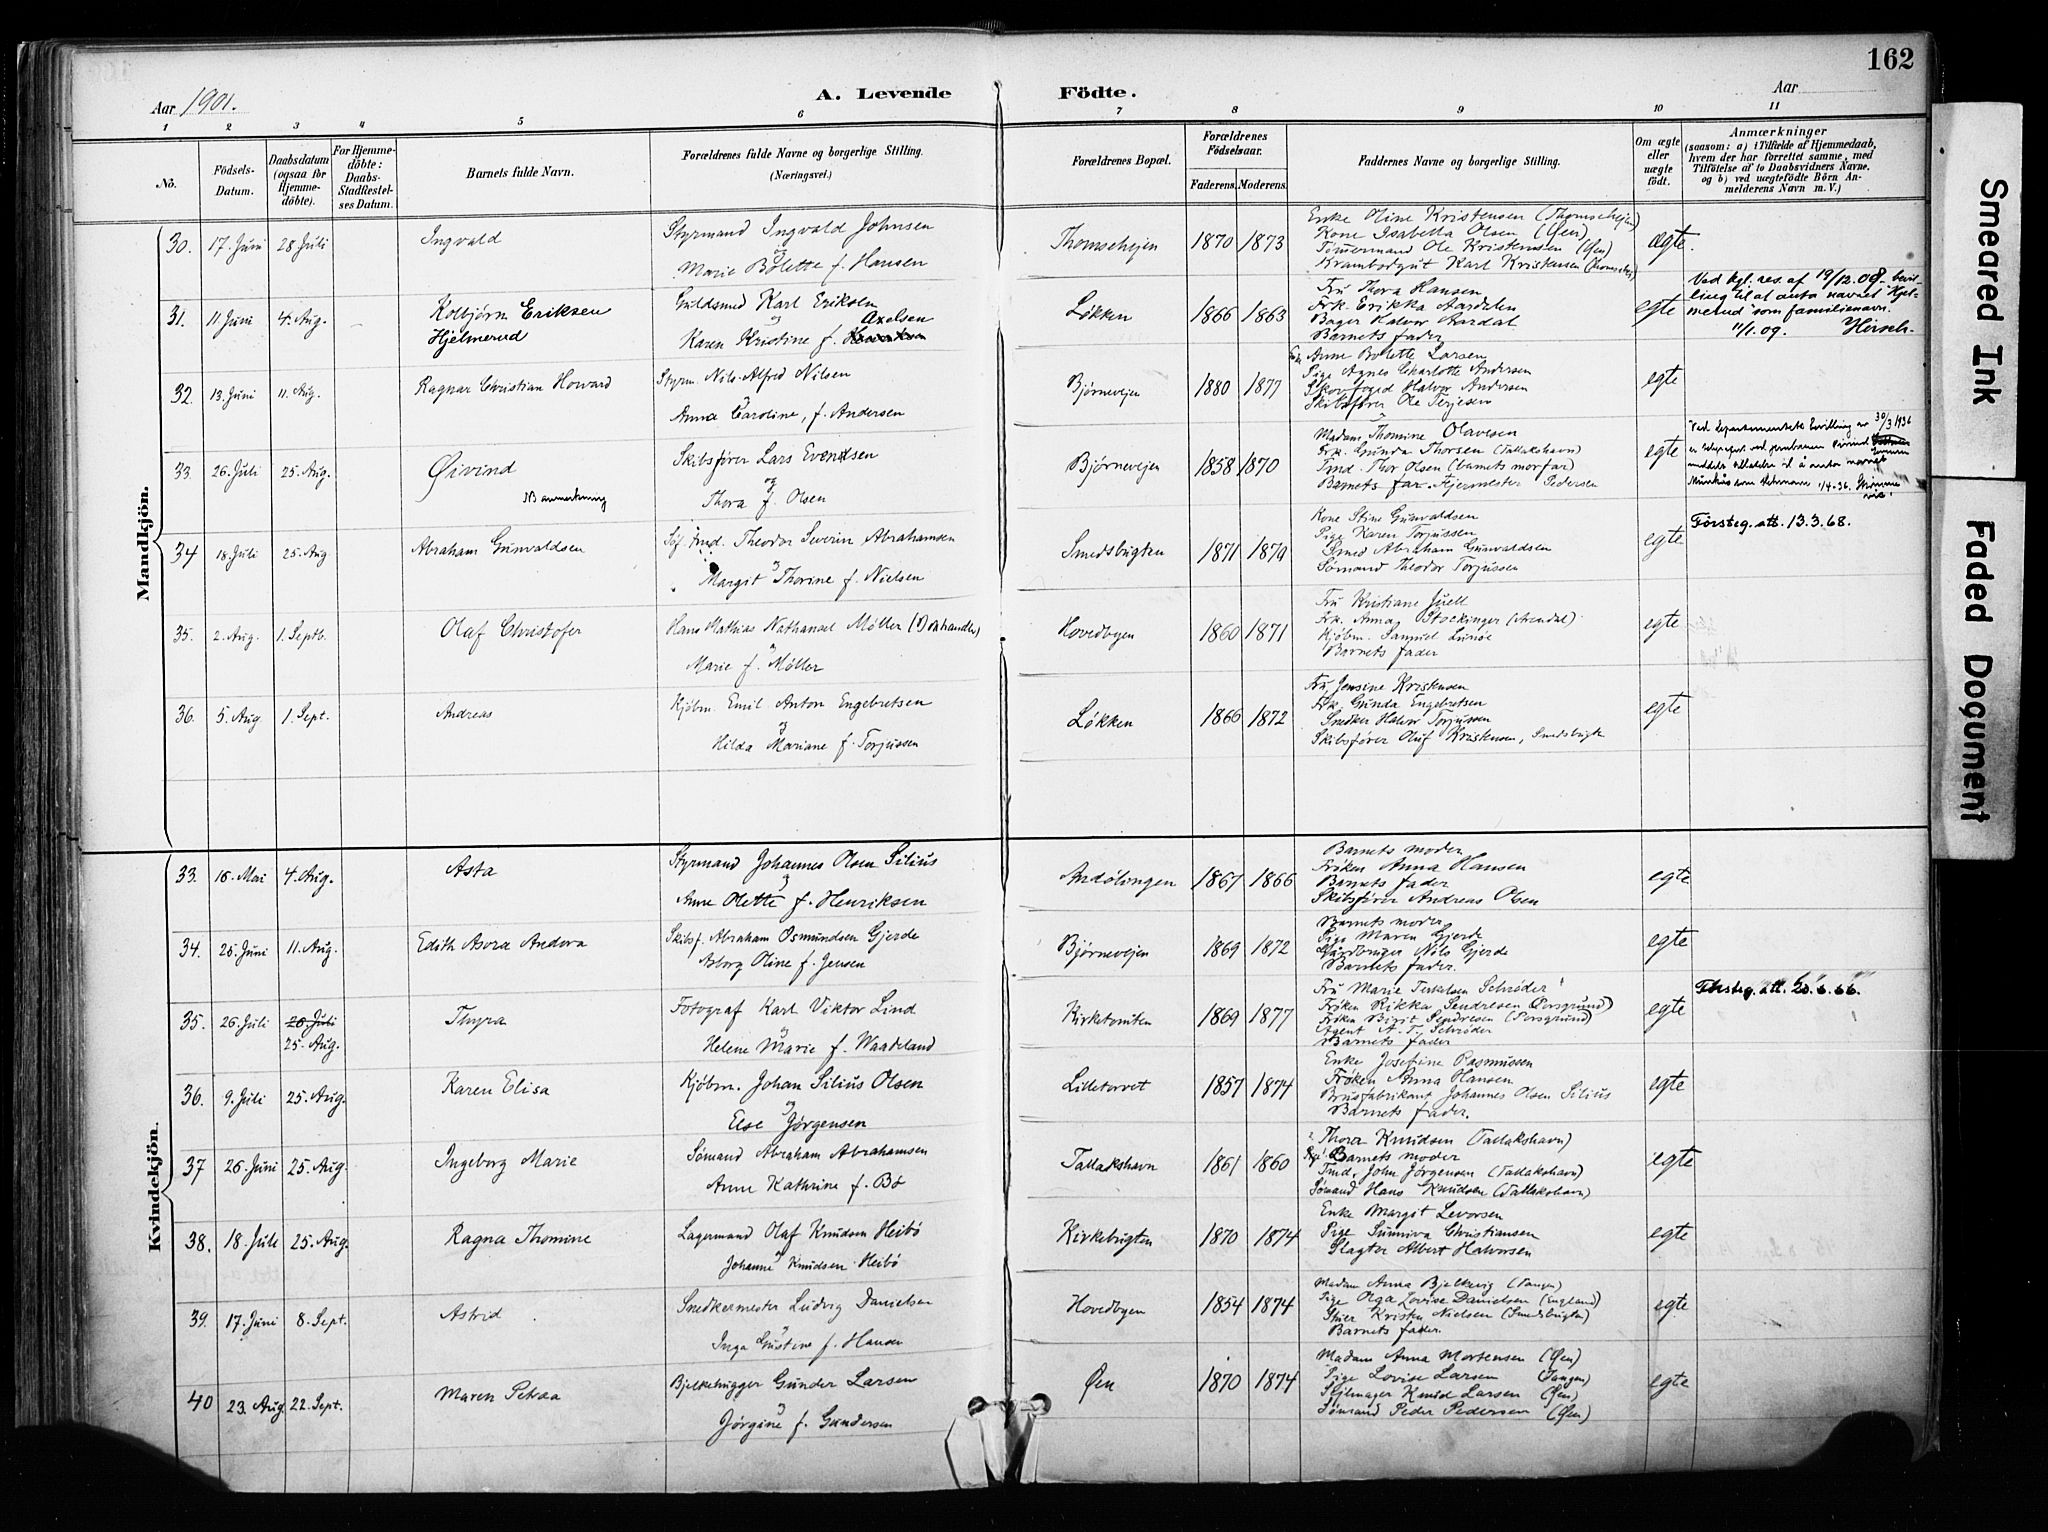 162
Aar 1901.
A. Levende Födte.
Aar
1 2 3 4 5 6 7 8 9 10 11
No.
Födsels-Datum.
Daabsdatum (ogsaa for Hjemme-döbte).
For Hjemme-döbte: Daabs-Stadfæstelses Datum.
Barnets fulde Navn.
Forældrenes fulde Navne og borgerlige Stilling. (Næringsvei.)
Forældrenes Bopæl.
Forældrenes Födselsaar.
Faderens. Moderens.
Faddernes Navne og borgerlige Stilling.
Om ægte eller uægte födt.
Anmærkninger (saasom: a) i Tilfælde af Hjemmedaab, hvem der har forrettet samme, med Tilföielse af to Daabsvidners Navne, og b) ved uægtefödte Börn Anmelderens Navn m. V.)
Mandkjön.
30. 17. Juni 28 Juli Ingvald
Styrmand Ingvald Johnsen
og
Marie Bolette f. Hansen
Thomsehejen 1870 1873
Enke Oline Kristensen (Thomsehejen)
Kone Isabella Olsen (Øen)
Tømmermand Ole Kristensen (Øen)
Krambodgut Karl Kristensen (Thomsehej)
ægte.
31. 11. Juni 4. Aug. Kolbjørn Eriksen
Hjelmerud
Guldsmed Karl Eriksen
og Axelsen
Karen Kristine f.
Løkken 1866 1863
Fru Thora Hansen
Frk. Erikka Aardalen
Bager Halvor Aardal
Barnets fader
egte
Ved kgl. res. af 19/12.08 bevil-
ling til at anta navnet "Hjel-
merud" som familienavn.
11/1.09. Hirsch
32. 13. Juni 11. Aug. Ragnar Christian Howard
Styrm. Nils Alfred Nilsen
og
Anna Caroline, f. Andersen
Bjørnevejen 1880 1877
Fru Anne Bolette Larsen
Pige Agnes Charlotte Andersen
Skovfoged Halvor Andersen
Skibsfører Ole Terjesen
egte
33. 26. Juli 25. Aug. Øivind
NB anmerkning
Skibsfører Lars Evensen
og
Thora f. Olsen
Bjørnevejen 1858 1870
Madam Thomine Olavesen
Frk. Gunda Thorsen (Tallakshavn)
Tmd. Thor Olsen (barnets morfar)
Barnets far. Hjermester Pedersen
egte
Ved departementets bevilling av 30/3 1936
meddelt tilladelse til å anta navnet
34 18. Juli 25. Aug Abraham Gunvaldsen
Søf. tmd. Theodor Severin Abrahamsen
og
Margit Thorine f. Nielsen
Smedsbugten 1871 1879
Kone Stine Gunvaldsen
Pige Karen Torjussen
Smed Abraham Gunvaldsen
Sømand Theodor Torjussen
egte
Førsteg. att. 13.3.68.
35. 2. Aug. 1. Septb. Olaf Christofer
Hans Mathias Nathanael Møller
og
Marie f. Møller
Hovedbyen 1860 1871
Fru Kristiane Juell
Frk. Anna Stockinger (Arendal)
Kjøbm. Samuel Lunøe
Barnets fader
egte
36. 5. Aug. 1. Sept. Andreas
Kjøbm. Emil Anton Engebretsen
og
Hilda Mariane f. Torjussen
Løkken 1866 1872
Fru Jensine Kristensen
Frk. Gunda Engebretsen
Snedker Halvor Torjussen
Skibsfører Oluf Kristensen, Smedsbugten
egte
Kvindekjön.
33. 16. Mai 4. Aug. Asta
Styrmand Johannes Olsen Silius
og
Anne Olette f. Henriksen
Andølingen 1867 1866
Barnets moder
Frøken Anna Hansen
Barnets fader
Skibsfører Andreas Olsen
egte
34. 25. Juni 11. Aug. Edith Asora Andora
Skibsf. Abraham Osmundsen Gjerde
Asborg Oline f. Jensen
Bjørnevejen 1869 1872
Barnets moder
Pige Maren Gjerde
Gårdbruger Nils Gjerde
Barnets fader.
egte
35. 26. Juli 26. Juli
25. Aug. Thyra
Fotograf Karl Viktor Lind
og
Helene Marie f. Waadeland
Kirketomten 1869 1877
Fru Marie Terkelsen Schrøder
Frøken Rikka Sendresen (Porsgrund)
Frøken Birit Sendresen (Porsgrund)
Agent A. T. Schrøder
Barnets fader
egte
Førsteg. att. 20.6.66.
36. 9. Juli 25. Aug. Karen Elisa
Kjøbm. Johan Silius Olsen
og
Else Jørgensen
Lilletorvet 1857 1874
Enke Josefine Rasmussen
Frøken Anna Hansen
Brusfabrikant Johannes Olsen Silius
Barnets fader.
egte
37 26. Juni 25. Aug. Ingeborg Marie
Sømand Abraham Abrahamsen
Anne Kathrine f. Bø
Tallakshavn 1861 1860
Thora Knudsen (Tallakshavn)
Barnets moder
Tmd. John Jørgensen (Tallakshavn)
Sømand Hans Knudsen (Tallakshavn)
egte
38. 18. Juli 25. Aug. Ragna Thomine
Lagermand Olaf Knudsen Heibø
Johanne Knudsen Heibø
Kirkebugten 1870 1874
Enke Margit Levorsen
Pige Sunniva Christiansen
Slagter Albert Halvorsen
egte
39. 17. Juni 8. Sept. Astrid
Snedkermester Ludvig Danielsen
og
Inga Gustine f. Hansen
Hovedbyen 1854 1874
Madam Anna Bjelkevig (Tangen)
Pige Olga Lovise Danielsen (England)
Kristen Nielsen (Smedsbugten)
Barnets fader.
egte
40 23. Aug 22. Sept. Maren Petraa
Bjelkehugger Gunder Larsen
og
Jørgine f. Gundersen
Øen 1870 1874
Madam Anna Mortensen (Øen)
Pige Lovise Larsen (Tangen)
Sejlmager Knud Larsen (Øen)
Sømand Peder Pedersen (Øen)
egte
Smeared Ink
Faded Document